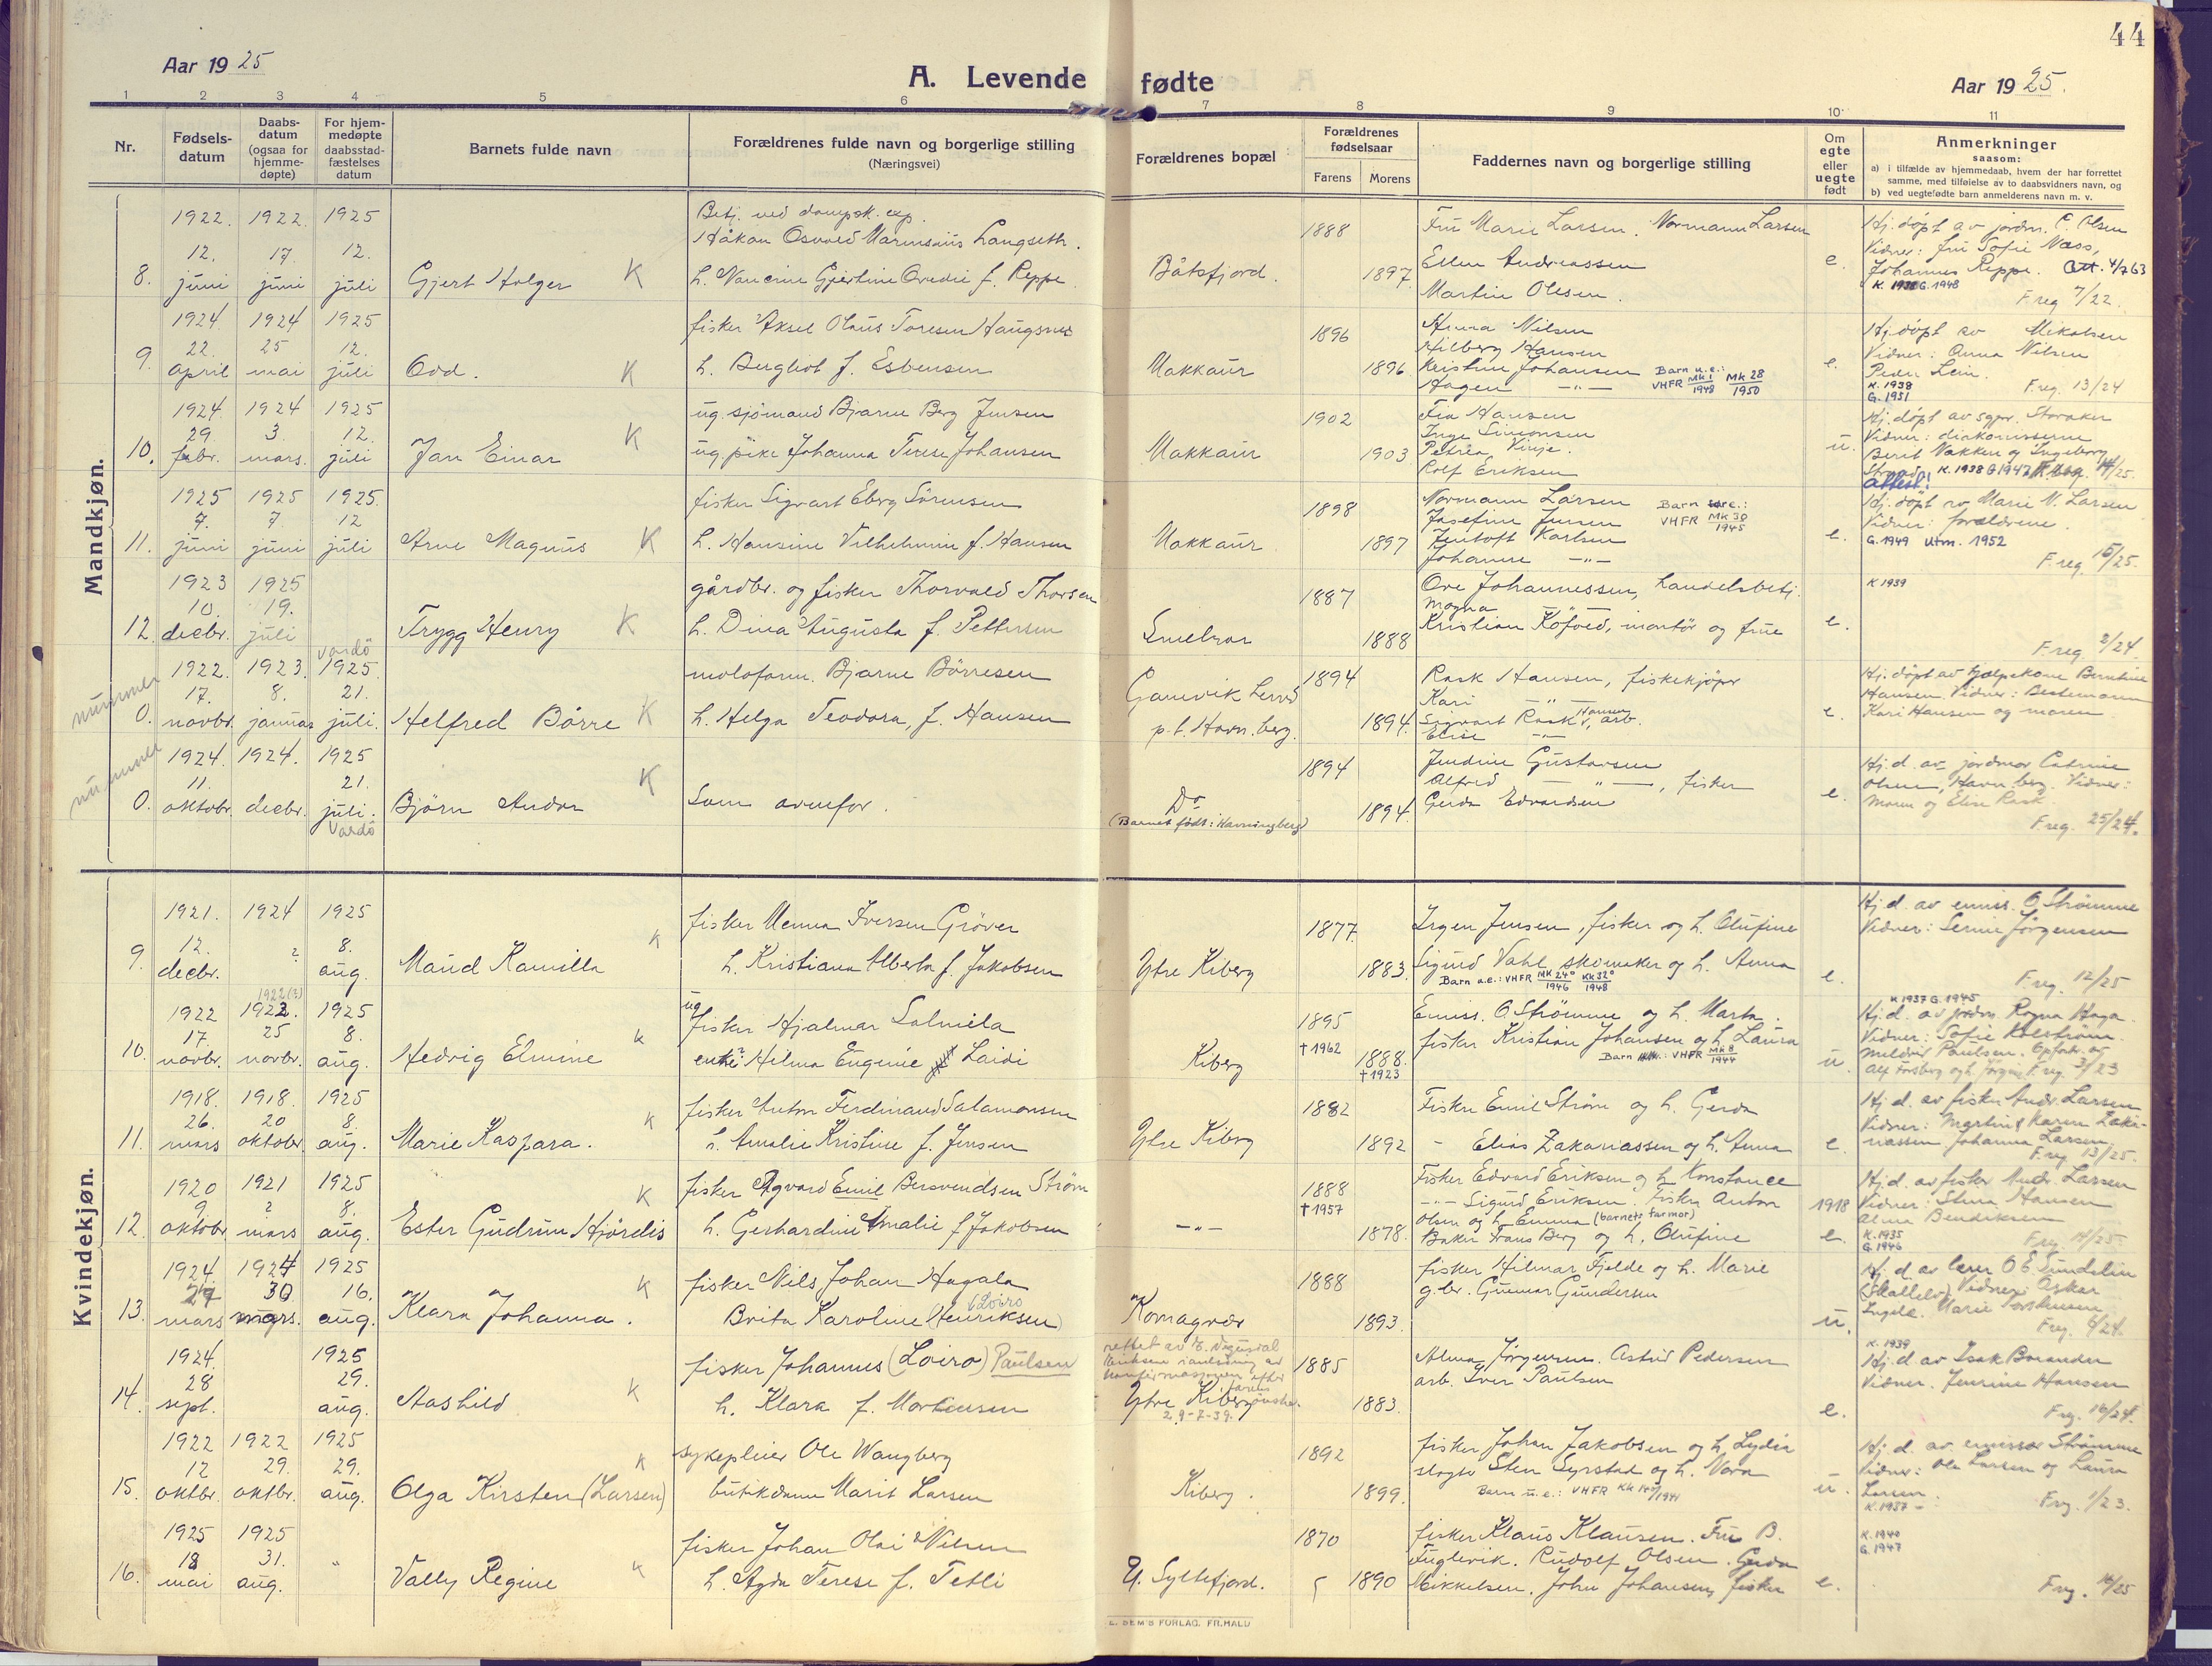 44
Aar 1925
A. Levende fødte
Aar 1925.
1 2 3 4 5 6 7 8 9 10 11
Nr.
Fødsels-
datum
Daabs-
datum
(ogsaa for
hjemme-
døpte)
For hjem-
medøpte
daabsstad-
fæstelses
datum
Barnets fulde navn
Forældrenes fulde navn og borgerlige stilling
(Næringsvei)
Forældrenes bopæl
Forældrenes
fødselsaar
Farens Morens
Faddernes navn og borgerlige stilling
Om
egte
eller
uegte
født
Anmerkninger
saasom:
a) i tilfælde av hjemmedaab, hvem der har forrettet
samme, med tilføielse av to daabsvidners navn, og
b) ved uegtefødte barn anmelderens navn m. v.
Mandkjøn.
8. 1922. 12. juni
1922. 17. juni
1925 12. juli
Gjert Holger K
Betj. ved dampsk. exp.
Håkan Osvald Marensius Langseth.
h. Nancine Gjertine Ovedie f. Reppe.
Båtsfjord.
1888 1897
Fru Marie Larsen. Normann Larsen
Ellen Andreassen
Martin Olsen.
e.
Hj. døpt av jordm. C. Olsen
Vidner: fru Sofie Næss,
Johannes Reppe. Att. 4/7 63
G. 1948
F reg 7/22.
9. 1924 22. april
1924 25 mai
1925 12. juli
Odd. K
fisker Aksel Olaus Toresen Haugsnes
h. Bergliot f. Esbensen
Makkaur
1896 1896
Anna Nilsen
Hilberg Hansen
Kristine Johansen
Hagen -"-
Barn u.e.:
VHFR Mk 1 1948 Mk 28 1950
e.
Hj. døpt av Mikalsen
Vidner: Anna Nilsen
Peder Lein.
K. 1938
G. 1951
F reg. 13/24
10. 1924. 29. febr.
1924 3. mars.
1925 12. juli
Jan Einar K
ug. sjømand Bjarne Berg Jensen
ug pike Johanna Terese Johansen
Makkaur
1902 1903
Fia Hansen
Inge Simonsen
Petrea Vinje.
Rolf Eriksen
u.
Hj. døpt av sgpr. Storaker
Vidner: diakonisserne
Berit Vakken og Ingeborg
K. 1938 G 1947
Attest!
11. 1925 7. juni
1925 7. juni
1925. 12 juli
Arne Magnus K
fisker Sigvart Eberg Sørensen
h. Hansine Vilhelmine f. Hansen
Makkaur
1898 1897
Normann Larsen
Josefine Jensen
Karlsen
Johanne -"-
VHFR Mk 30 1945
e.
Hj. døpt av Marie N. Larsen
Vidner: forældrene.
G. 1949 Utm. 1952
F reg. 15/25.
12. 1923 10. decbr.
1925 19. juli
Trygg Henry K
gårdbr. og fisker Thorvald Thorsen
h. Dina Augusta f. Pettersen
Smelror
1887 1888
Ove Johannessen, handelsbetj.
Magna -"-
Kristian Kofoed, montør og frue
e.
K 1939
F reg. 2/24.
nummer
0. 1922. 17. novbr.
1923. 8. januar
Vardø
1925. 21. juli.
Helfred Børre K
moloform. Bjarne Børresen
h. Helga Teodora, f. Hansen
Gamvik
p.t. Havn. berg.
1894 1894.
Rask Hansen, fiskekjøper
Kari -"-
Sigvart Rask Hansen, arb.
Elise -"-
e.
Hj. døpt av hjælpekone Berntine
Hansen. Vidner: Bestemoren
Kari Hansen og moren
nummer
0. 1924. 11. oktobr.
1924. decbr.
1925 21. juli.
Vardø
Bjørn Andor K
Som ovenfor.
Do
(Barnet født: Havningberg)
1894 1894.
Jendine Gustavsen
Alfred -"-, fisker
Gerda Edvardsen
e.
Hj. d. av jordmor Catrine
Olsen, Havn. berg. Vidner:
Moren og Elise Rask.
F reg. 25/24.
Kvindekjøn.
9. 1921. 12. decbr.
1924 ?
1925 8. aug.
Maud Kamilla K
fisker Menna Iversen Grøver
h. Kristiana Alberta f. Jakobsen
Ytre Kiberg
1877. 1883.
Irgen Jensen, fisker og h. Olufine
Sigurd Vahl skomaker og h. Anna
Barn u.e.: VHFR MK 24° 1946 KK 32° 1948
e.
Hj. d. av emiss. O Strømme
Vidner: Serine Jørgensen
F reg. 12/25
10. 1922 17. novbr.
1922 (?)
1923. 25 novbr.
1925 8. aug.
Hedvig Elmine K
ug
fisker Hjalmar Salmila
enke Helma Eugenie Laidi
Kiberg
1895 † 1962
1888. † 1923
Emiss. O Strømme og h. Marta.
fisker Kristian Johansen og h. Laura
VHFR Mk 8 1944
u.
K 1937 G. 1945
Hj. d. av jordm Ragna Haga.
Vidner: Sofie
Paulsen.
11. 1918. 26. mars
1918. 20 oktobr.
1925 8. aug.
Marie Kaspara. K
fisker Anton Ferdinand Salamonsen
h. Amalie Kristine f. Jensen
Ytre Kiberg
1882 1892
Fisker Emil Strøm og h. Gerda
- Elias Zakariassen og h. Anna
e.
Hj. d. av fisker Andr. Larsen
Vidner: Martin & Karen Zaka-
riassen Johanna Larsen
F reg. 13/25.
12. 1920 9. oktobr
1921 ? mars
1925 8. aug.
Ester Gudrun Hjørdis K
fisker Agvard Emil Bersvendsen Strøm
h. Gerhardine Amalie f Jakobsen
-"-
1888 † 1957
1878.
Fisker Edvard Eriksen og h Konstance
-"- Sigurd Eriksen, fisker Anton
Olsen og h. Emma (barnets farmor)
Baker Frans Berg og h. Olufine
1918
e.
Hj. d. av fisker Andr. Larsen
Vidner: Stina Hansen
Alma Bendiksen
K. 1935
G. 1946
F reg. 14/25
13. 1924 27 mars
1924 30 mars.
1925 16. aug.
Klara Johanna. K
fisker Nils Johan Hagala
Brita Karoline (Henriksen)
Loiro
Komagvær
1888 1893.
fisker Hilmar Fjelde og h. Marie
g.br. Gunnar Gundersen
u.
Hj. d. av lærer O E Sundelin
(Skallelv) Vidner: Oskar
F reg. 6/24.
14. 1924. 28 sept.
1925 29. aug.
Aashild K
fisker Johannes (Loiro) Paulsen
h. Klara f. Mortensen
Ytre Kiberg
29-7-39.
1885 1883.
Alma Jørgensen. Astrid Pedersen
arb. Iver Paulsen
e.
K. 1939
Hj. d. av Isak Borander
Vidner. Jensine Hansen
F reg. 16/24.
15. 1922 12 oktbr.
1922 29. oktbr.
1925 29. aug.
Olga Kirsten (Larsen) K
sykepleier Ole Wangberg
butikdame Marit Larsen
Kiberg.
1892 1899.
fisker Johan Jakobsen og h. Lydia
slagter Sten Syrstad og h. Nora
Barn u.e.: VHFR
u.
Hj. d. av emissær Strømme
Vidner: Ole Larsen og Laura
Larsen.
K. 1937 -
F reg. 1/23.
16. 1925 18 mai
1925 31. aug.
"
Vally Regine K
fisker Johan Olai Nilsen
h. Agda Terese f. Tetli
Y. Syltefjord.
1870 1890
fisker Klaus Klausen. Fru B.
Fuglevik. Rudolf Olsen. Gerda
Mikkelsen. John Johansen, fisker
e.
K. 1940
G. 1947
F reg. 14/25
E. SEM'S FORLAG. FR.HALD